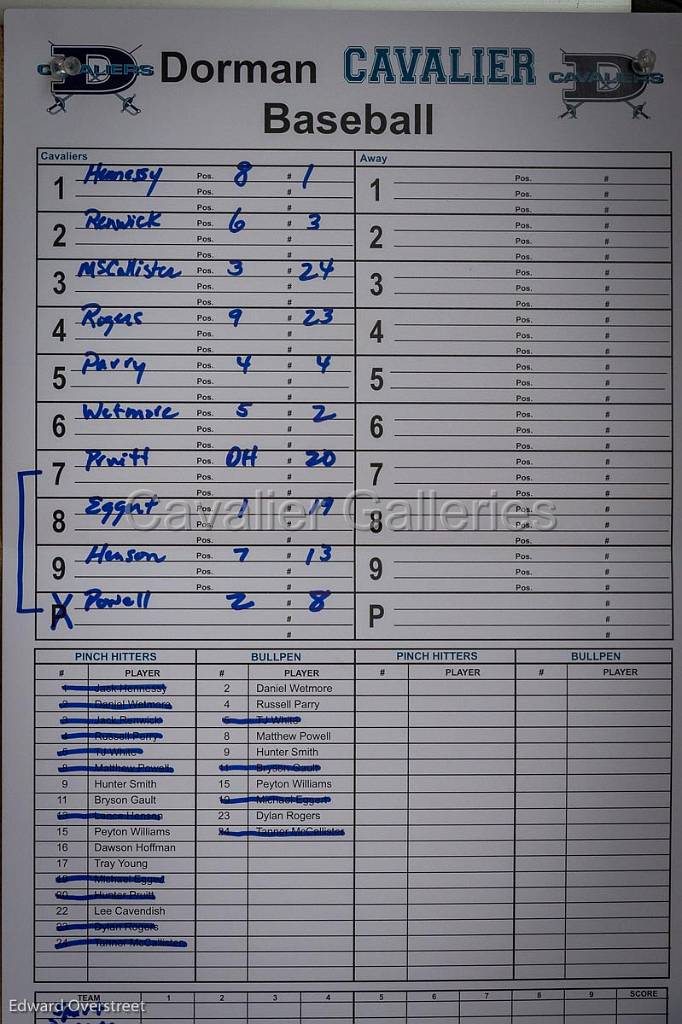 CAVALIERS D Dorman CAVALIER CAVALIERS D
Baseball
Cavaliers
1 Hennessy Pos. 8 # 1
Pos. #
Pos. #
2 Renwick Pos. 6 # 3
Pos. #
Pos. #
3 McCallister Pos. 3 # 24
Pos. #
Pos. #
4 Rogers Pos. 9 # 23
Pos. #
Pos. #
5 Parry Pos. 4 # 4
Pos. #
Pos. #
6 Wetmore Pos. 5 # 2
Pos. #
Pos. #
7 Pruitt Pos. DH # 20
Pos. #
Pos. #
8 Eggert Pos. 1 # 19
Pos. #
Pos. #
9 Henson Pos. 7 # 13
Pos. #
Pos. #
P X Powell Pos. 2 # 8
#
#
Away
1 Pos. #
Pos. #
Pos. #
2 Pos. #
Pos. #
Pos. #
3 Pos. #
Pos. #
Pos. #
4 Pos. #
Pos. #
Pos. #
5 Pos. #
Pos. #
Pos. #
6 Pos. #
Pos. #
Pos. #
7 Pos. #
Pos. #
Pos. #
8 Pos. #
Pos. #
Pos. #
9 Pos. #
Pos. #
Pos. #
P #
#
#
Cavalier Galleries
PINCH HITTERS
# PLAYER
1 Jack Hennessy
2 Daniel Wetmore
3 Jack Renwick
4 Russell Parry
5 TJ White
8 Matthew Powell
9 Hunter Smith
11 Bryson Gault
13 Lance Henson
15 Peyton Williams
16 Dawson Hoffman
17 Tray Young
19 Michael Eggert
20 Hunter Pruitt
22 Lee Cavendish
23 Dylan Rogers
24 Tanner McCallister
BULLPEN
# PLAYER
2 Daniel Wetmore
4 Russell Parry
5 TJ White
8 Matthew Powell
9 Hunter Smith
11 Bryson Gault
15 Peyton Williams
19 Michael Eggert
23 Dylan Rogers
24 Tanner McCallister
PINCH HITTERS
# PLAYER
BULLPEN
# PLAYER
TEAM 1 2 3 4 5 6 7 8 9 SCORE
Edward Overstreet